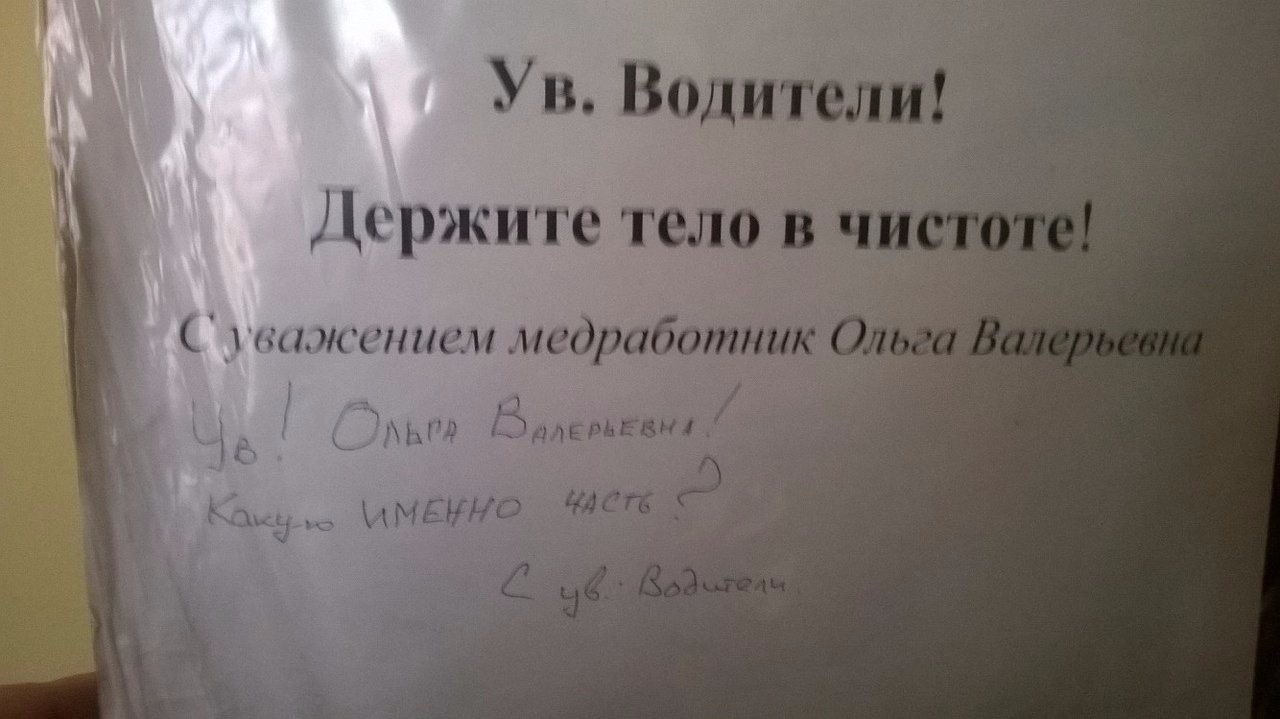 Ув. Водители!
Держите тело в чистоте!
С уважением медработник Ольга Валерьевна
Ув! Ольга Валерьевна!
Какую именно часть?
С ув. Водители.